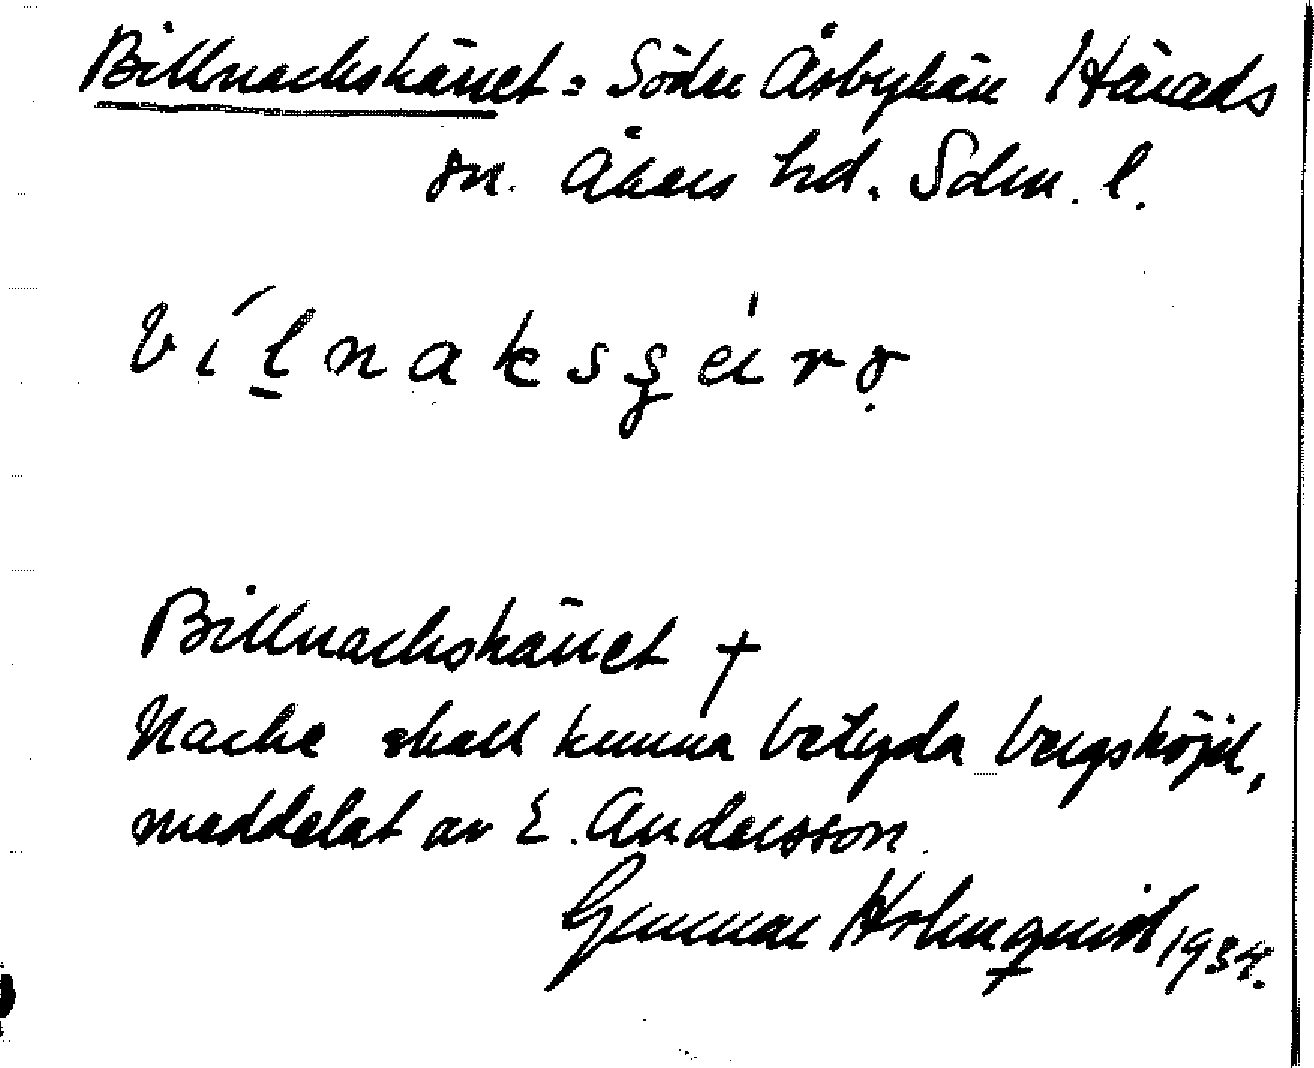 Billnackskärret = Södra Åsbykärr Härads
sn. Åkers hd. Sdm. l.
Billnackskärret †
Nacke skall kunna betyda bergshöjd,
meddelat av E. Andersson.
Gunnar Holmquist 1934.